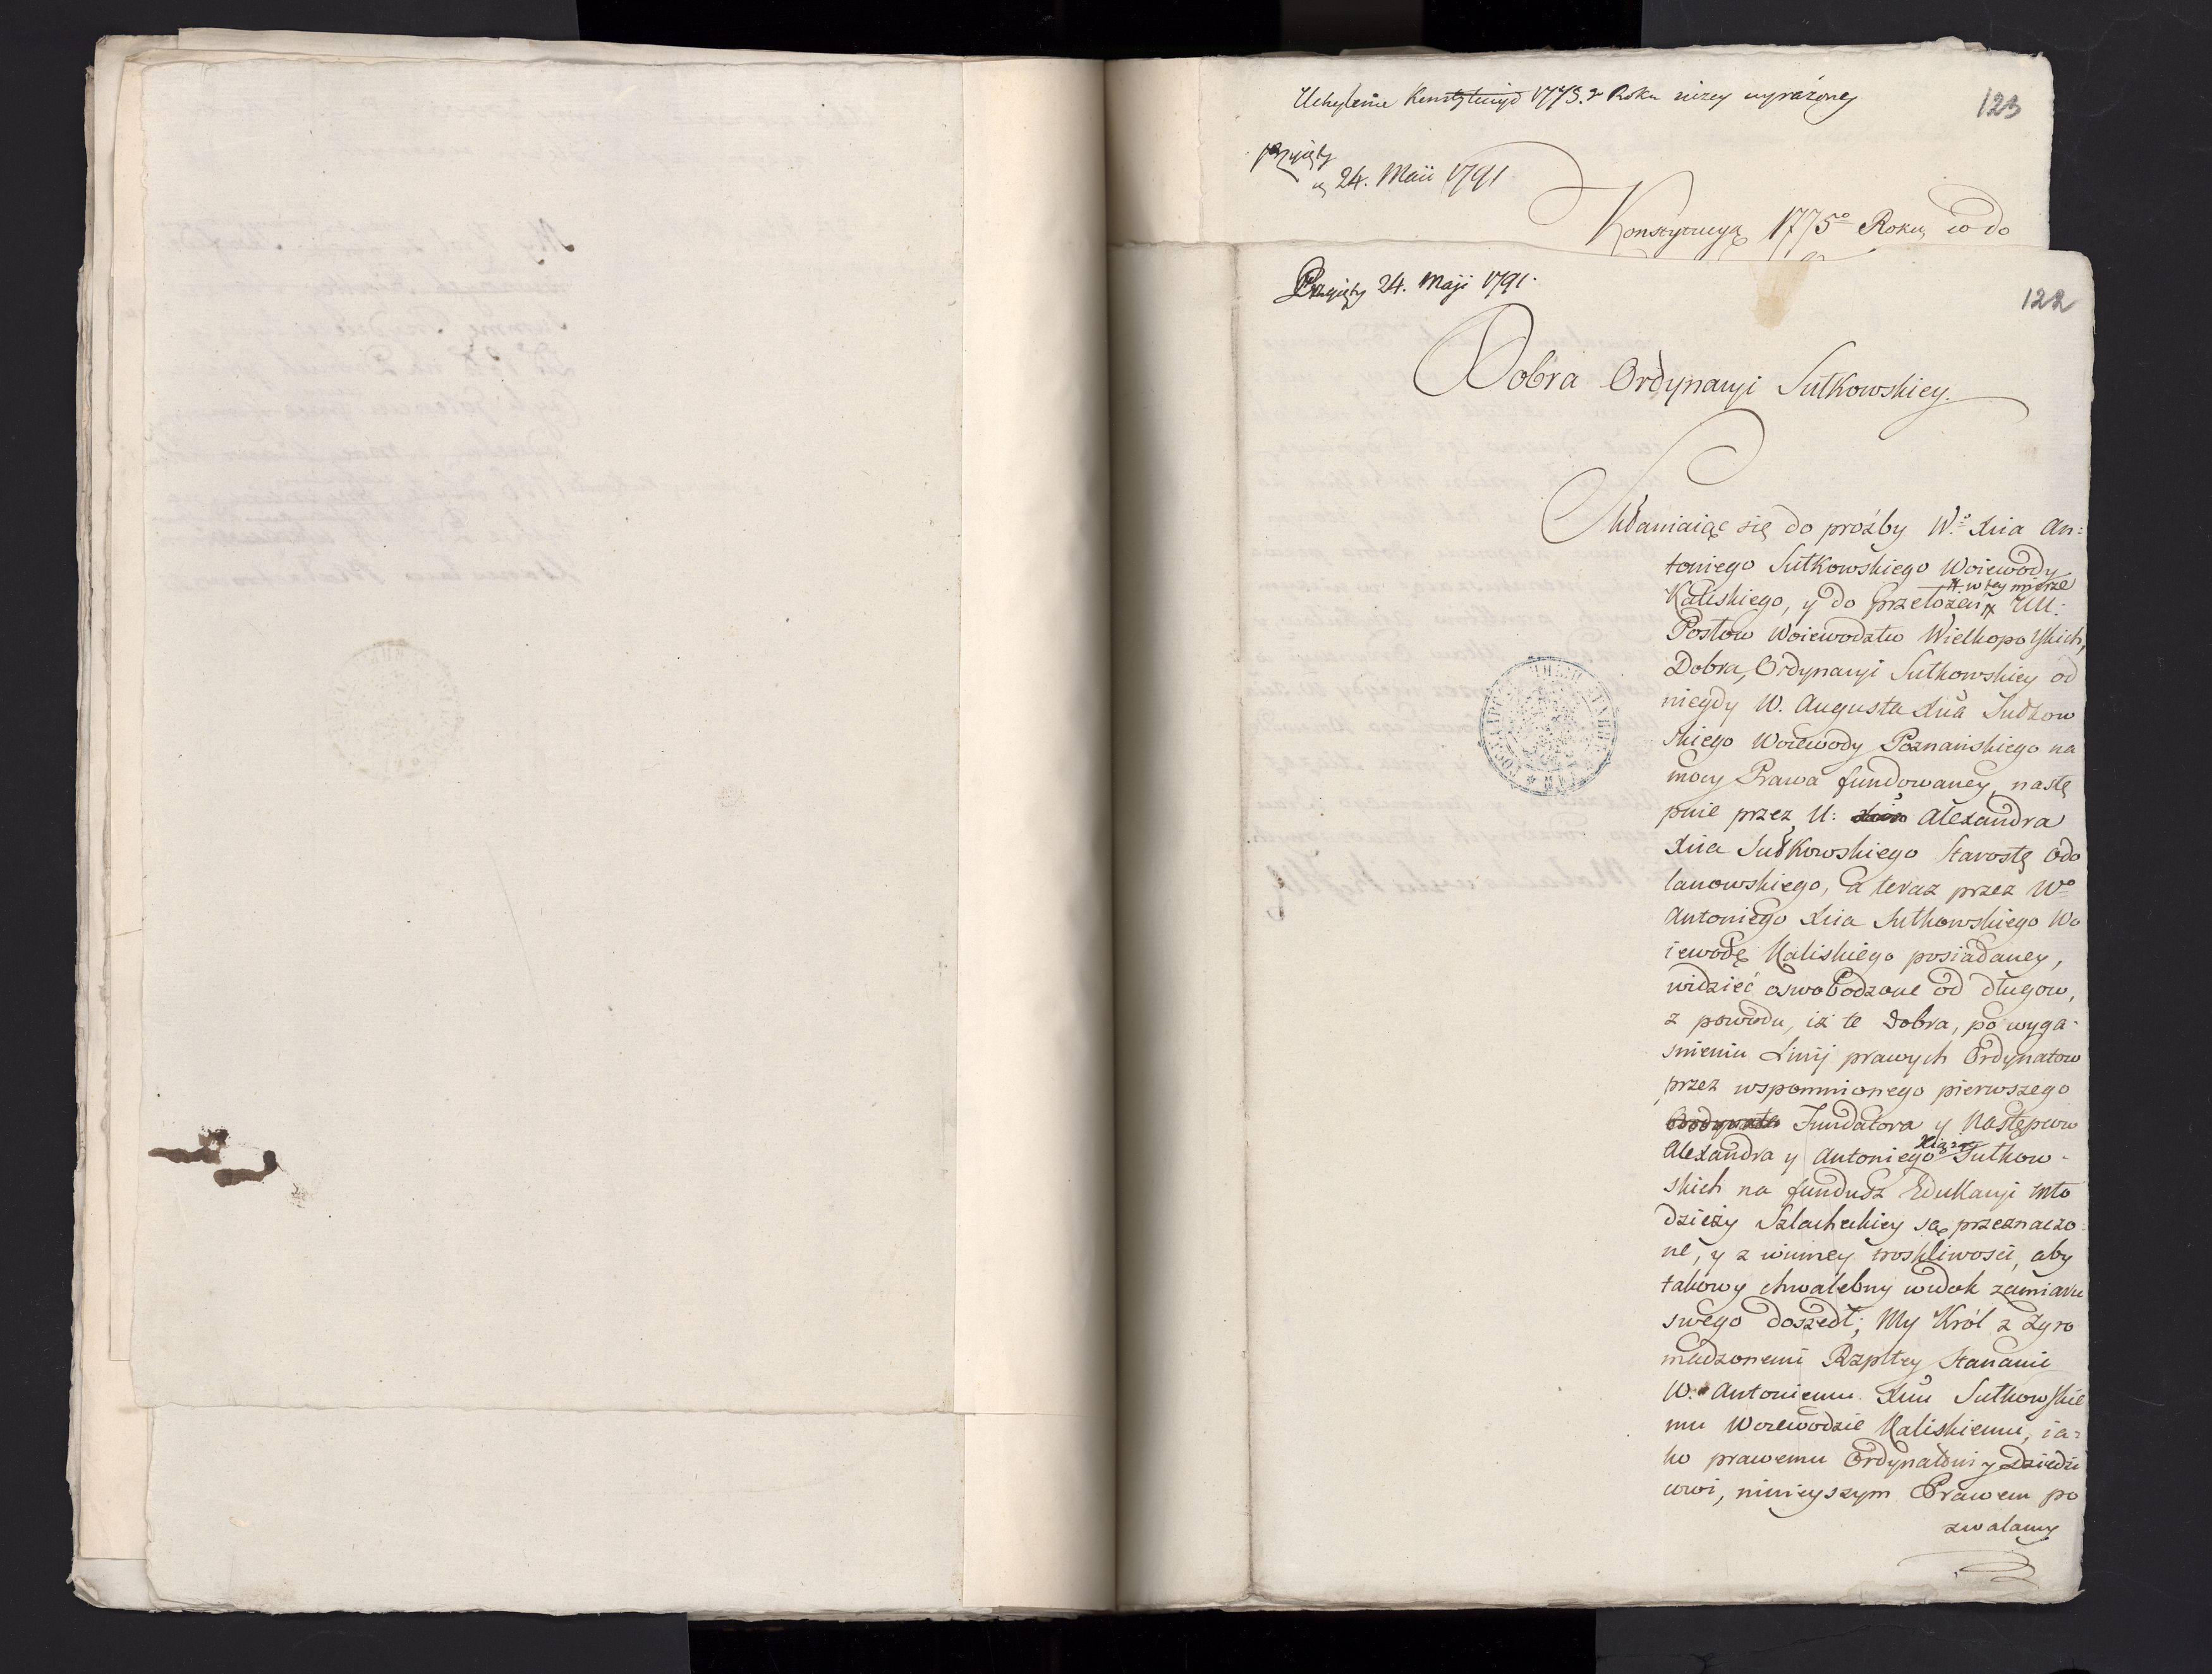 Uchylenie Konstytucyi 1775.o Roku niżey wyrażoney
123
przyięty
24. Maii 1791
Konstytucyą 1775o Roku, co do
Przyięty 24. Maji 1791.
122
Dobra Ordynacyi Sułkowskiey.
Skłaniaiąc się do proźby Wo Xcia An=
toniego Sułkowskiego Woiewody
# w tey mierze
Kaliskiego, y do przełożeń # UU:
Posłow Woiewodztw Wielkopolskich,
Dobra, Ordynacyi Sułkowskiey od
niegdy W. Augusta Xcia Sułkow
skiego Woiewody Poznańskiego na
mocy Prawa fundowaney, nastę
pnie przez U: Alexandra
Xcia Sułkowskiego Starostę Odo
lanowskiego, a teraz przez Wo
Antoniego Xcia Sułkowskiego Wo
iewodę Kaliskiego posiadaney,
widzieć oswobodzone od długow,
z powodu, iż te Dobra, po wyga-
śnieniu Linij prawych Ordynatow
przez wspomnionego pierwszego
Ordynata Fundatora y Następcow
Xiążąt
Alexandra y Antoniego Sułkow-
skich na fundusz Edukacyi Mło
dzieży Szlacheckiey są przeznaczo
ne, y z winney troskliwości, aby
takowy chwalebny widok zamiaru
swego doszedł; My Król z Zgro
madzonemi Rzpltey Stanami
W. Antoniemu Xciu Sułkowskie
mu Woiewodzie Kaliskiemu, ia=
ko prawemu Ordynatowi y Dziedzi
cowi, ninieyszym Prawem po
zwalamy